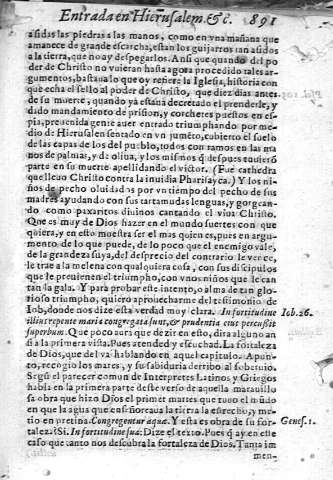 Entrada en Hierusalem. &c. 891
asidas las piedras a las manos, como en vna mañana que
amanece de grande escarcha, estan los guijarros tan asidos
a la tierra, que no ay despegarlos. Ansi que quando del po
der de Christo no vuieran hasta agora procedido tales ar-
gumentos, bastaua lo que oy refiere la Iglesia, historia con
que echa el sello al poder de Christo, que diez dias antes
de su muerte, quando ya estaua decretado el prenderle, y
dado mandamiento de prision, y corchetes puestos en es-
pia, pretenda auer entrado triumphando por me
dio de Hierusalen sentado en vn jumẽto, cubierto el suelo
de las capas de los del pueblo, todos con ramos en las ma
nos de palmas, y de oliua, y los mismos q̃ despues
parte en su muerte apellidando el victor. (Fue cathedra
que lleuo Christo contra la inuidia Pharisayca.) Y los ni-
ños de pecho oluidados por vn tiempo del pecho de sus
madres ayudando con sus tartamudas lenguas, y gorgean-
do como paxaritos diuinos cantando el viua Christo.
Que es muy de Dios hazer en el mundo suertes con que
quiera, y en esto muestra ser el mas quien es, pues en argu-
mento de lo que puede, de lo poco que el enemigo vale,
de la grandeza suya, del desprecio del contrario le vence,
le trae a la melena con qualquiera cosa, con sus discipulos
que le preuienen el triumpho, con vnos niños que le can
tan la gala. Y para probar este intento, o alma de tan glo-
rioso triumpho, quiero aprouecharme del testimonio de
Iob, donde nos dize esta verdad muy clara. In fortitudine Iob. 26.
illius repente maria congregata sunt, & prudentia eius percussit
superbum. Que poco aura que dezir en esto, dira alguno an
si a la primera vista. Pues atended y escuchad. La fortaleza
de Dios, que del va hablando en aquel capitulo. Apun-
to, recogio los mares, y su sabiduria derribo al soberuio.
Segũ el parecer comun de Interpretes Latinos, y Griegos
habla en la primera parte deste verso de aquella marauillo
sa obra que hizo Dios el primer martes que tuuo el mũdo
en que la agua que enseñoreaua la tierra la estrecho, y me-
tio en pretina. Congregentur aquæ. Y esta es obra de su for- Genes. 1.
taleza. Si. In fortitudine sua: Dize el texto. Pues q̃ ay en este
caso que tanto nos descubra la fortaleza de Dios. Tanta im
men-